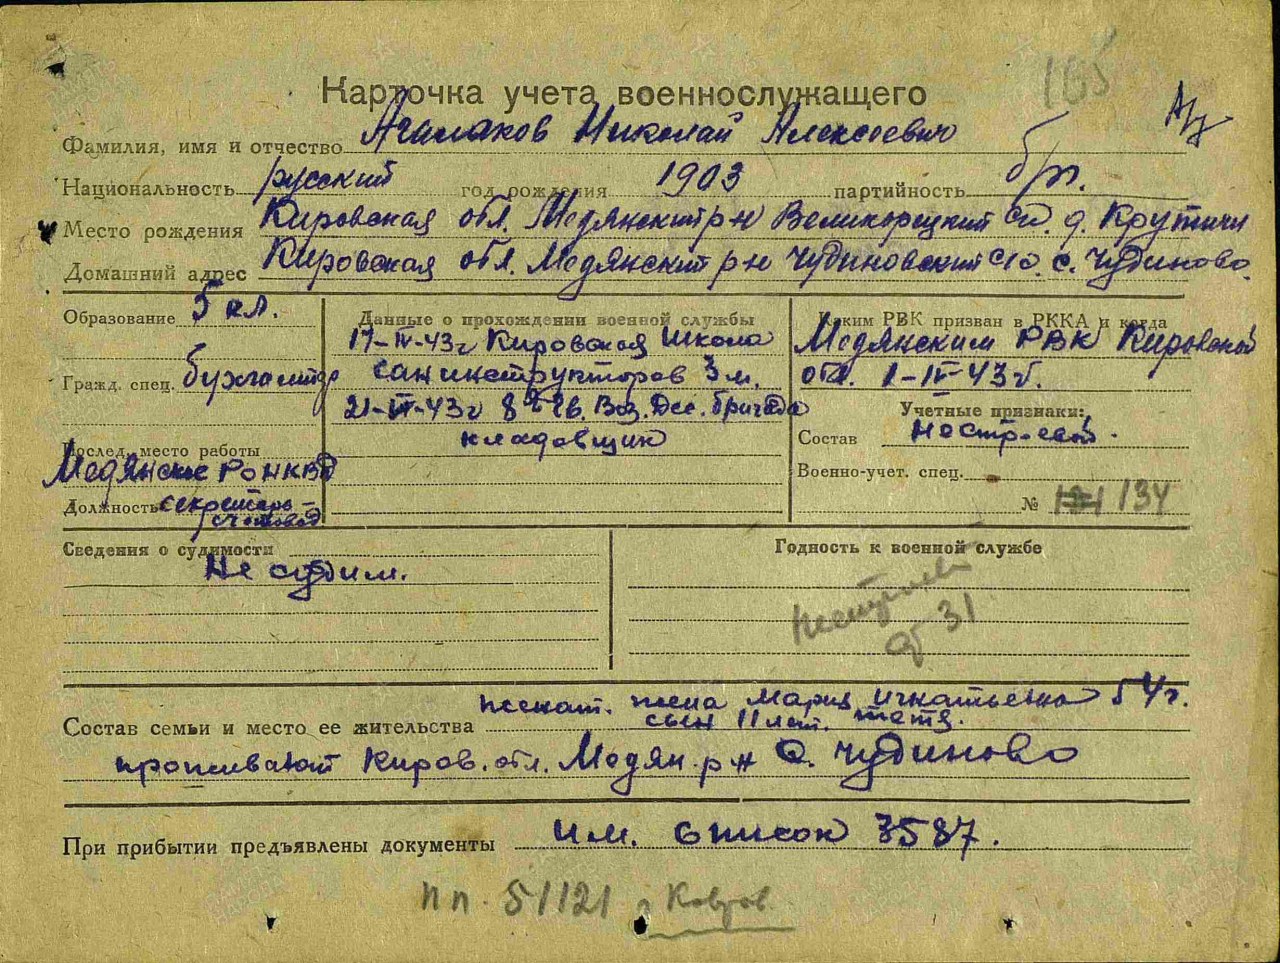 165
Карточка учета военнослужащего
Фамилия, имя и отчество Агалаков Николай Алексеевич
Национальность русский год рождения 1903 партийность б/п.
Место рождения Кировская обл. Медянский р-н Великорецкий с/с. д. Крутичи
Домашний адрес Кировская обл. Медянский р-н Чудиновский с/с. с. Чудиново.
Образование 5 кл.
Гражд. спец. бухгалтер
Послед. место работы
Медянское РОНКВД
Должность секретарь-
счетовод
Данные о прохождении военной службы
17-IV-43г Кировская школа
санинструкторов 3 м.
21-43г 8 Воз. Дес. бригада
кладовщик
Каким РВК призван в РККА и когда
Медянским РВК Кировской
обл. 1-IV-43г.
Учетные признаки:
Состав нестроевой.
Военно-учет. спец.
№ 134
Сведения о судимости
Не судим.
Годность к военной службе
нестроевой
31
Состав семьи и место ее жительства женат. жена Мария Игнатьевна 54г.
сын 11 лет.
проживают Киров. обл. Медян. р-н с. Чудиново
При прибытии предъявлены документы им. список 3587.
пп. 51121 г Ковров